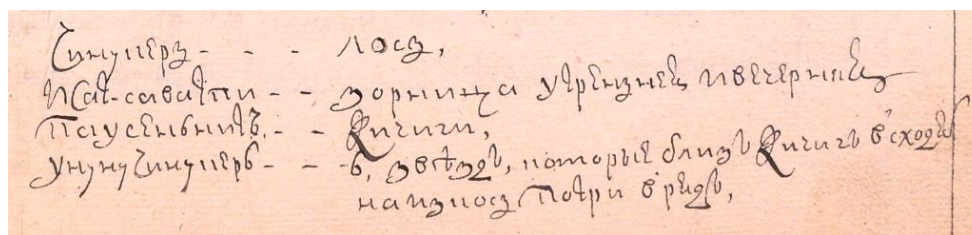 Чинуперъ - - - лось,
Иса-савати - - зорница утренняя и вечерняя
Паусеньникъ, - - Кичиги,
Унунучинуперъ - - - 6, звѣздъ, которые близъ Кичигъ всходятъ
наискось по три в рядъ,